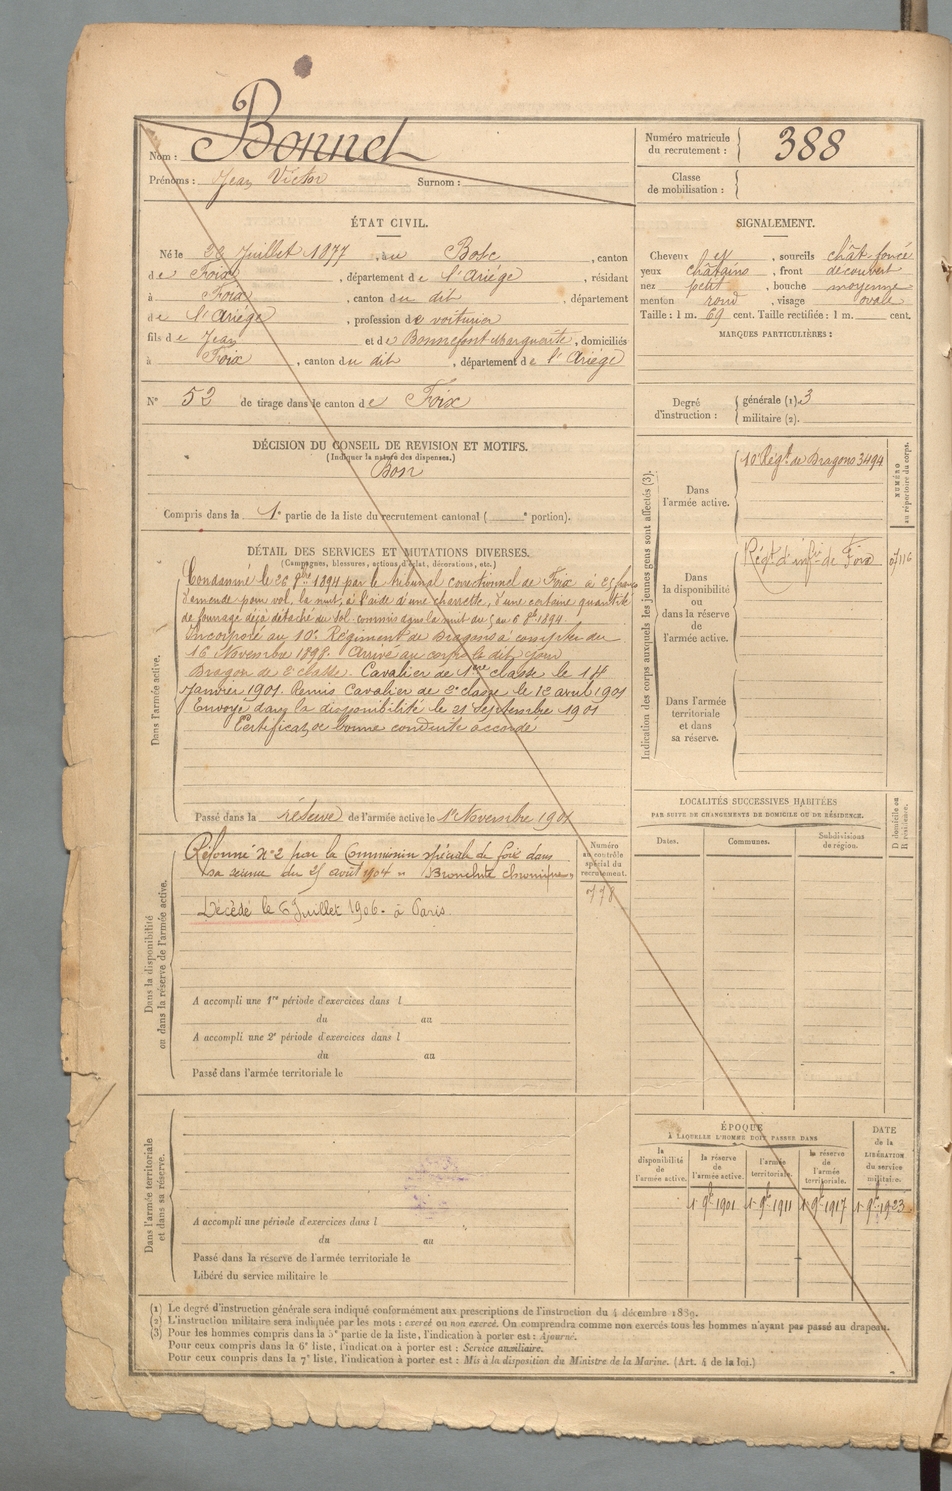 Nom : Bonnet
Prénoms : Jean Victor Surnom :
Numéro matricule du recrutement : 388
Classe de mobilisation :
ÉTAT CIVIL.
Né le Juillet 1877, au Bosc, canton
de Foix, département de l'Ariége, résidant
à Foix, canton du dit, département
de l'Ariége, profession de voiturier
fils de Jean et de Bonnefont Marguerite, domiciliés
à Foix, canton du dit, département de l'Ariége
SIGNALEMENT.
Cheveux , sourcils chât foncé
yeux châtains, front découvert
nez petit, bouche moyenne
menton rond, visage ovale
Taille : 1 m. 69 cent. Taille rectifiée : 1 m. cent.
MARQUES PARTICULIÈRES :
N° 52 de tirage dans le canton de Foix
Degré d'instruction : générale (1). 3
militaire (2).
DÉCISION DU CONSEIL DE REVISION ET MOTIFS.
(Indiquer la nature des dispenses.)
Bon
Compris dans la 1e partie de la liste du recrutement cantonal ( e portion).
DÉTAIL DES SERVICES ET MUTATIONS DIVERSES.
(Campagnes, blessures, actions d'éclat, décorations, etc.)
Dans l'armée active.
Condamné le 26 1894 par le tribunal correctionnel de Foix à 25 francs
d'amende pour vol, la nuit, à l'aide d'une charrette, d'une certaine quantité
de fourrage déjà détaché du sol commis dans la nuit du 5 au 6 8bre 1894.
Incorporé au 10e Régiment de Dragons à compter du
16 Novembre 1898. Arrivé au corps le dit jour
Dragon de 2e classe. Cavalier de 1ère classe le 14
Janvier 1901. Remis Cavalier de 2e classe le 12 avril 1901
Envoyé dans la disponibilité le 21 Septembre 1901
Certificat de bonne conduite accordé
Passé dans la réserve de l'armée active le 1er Novembre 1901
Indication des corps auxquels les jeunes gens sont affectés (3).
Dans l'armée active.
10e Régt de Dragons 3494
NUMÉRO au répertoire du corps.
Dans la disponibilité ou dans la réserve de l'armée active.
Régt d'infie de Foix
Dans l'armée territoriale et dans sa réserve.
Dans la disponibilité ou dans la réserve de l'armée active.
Réformé n° 2 par la Commission spéciale de Foix dans
sa séance du 25 août 1904 " Bronchite chronique "
Décédé le 6 Juillet 1906. à Paris.
Numéro au contrôle spécial du recrutement.
778
A accompli une 1re période d'exercices dans l
du au
A accompli une 2e période d'exercices dans l
du au
Passé dans l'armée territoriale le
LOCALITÉS SUCCESSIVES HABITÉES
PAR SUITE DE CHANGEMENTS DE DOMICILE OU DE RÉSIDENCE.
Dates.
Communes.
Subdivisions de région.
D domicile ou R résidence.
Dans l'armée territoriale et dans sa réserve.
A accompli une période d'exercices dans l
du au
Passé dans la réserve de l'armée territoriale le
Libéré du service militaire le
ÉPOQUE
À LAQUELLE L'HOMME DOIT PASSER DANS
la disponibilité de l'armée active.
la réserve de l'armée active.
l'armée territoriale.
la réserve de l'armée territoriale.
DATE de la LIBÉRATION du service militaire.
1er 9bre 1901
1er 9bre 1911
1er 9bre 1917
1er 9bre 1923
(1) Le degré d'instruction générale sera indiqué conformément aux prescriptions de l'instruction du 4 décembre 1889.
(2) L'instruction militaire sera indiquée par les mots : exercé ou non exercé. On comprendra comme non exercés tous les hommes n'ayant pas passé au drapeau.
(3) Pour les hommes compris dans la 5e partie de la liste, l'indication à porter est : Ajourné.
Pour ceux compris dans la 6e liste, l'indication à porter est : Service auxiliaire.
Pour ceux compris dans la 7e liste, l'indication à porter est : Mis à la disposition du Ministre de la Marine. (Art. 4 de la loi.)